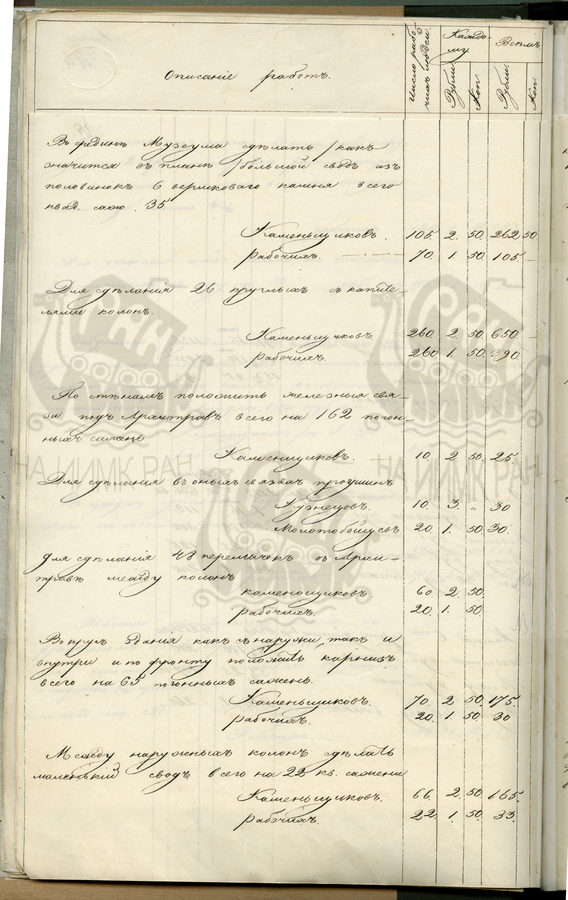 Описаніе работъ.
Число рабочихъ людей
Каждому
Всѣмъ
Рубли.
Коп.
Рубли.
Коп.
Въ срединѣ Музеума сдѣлать /какъ
значится въ планѣ/ большой сводъ изъ
половинокъ 6 вершковаго камня всего
квад. саж. 35
Каменьщиковъ. 105. 2. 50. 262 50
Рабочихъ. 70. 1 50 105 —
Для сдѣланія 26 круглыхъ съ капите-
лями колонъ.
Каменьщиковъ. 260. 2. 50. 650 —
Рабочихъ. 260 1. 50. 390
По стѣнамъ положить желѣзныя свя-
зи подъ Архитравъ всего на 162 погон-
ныхъ сажень
Каменщиковъ. 10. 2 50. 25
Для сдѣланія въ оныхъ связяхъ проушинъ
Кузнецовъ. 10. 3. „ 30
Молотобойцевъ 20. 1. 50 30.
Для сдѣланія 48 перемычекъ въ Архи-
травѣ между колонъ
Каменьщиковъ. 60 2. 50.
Рабочихъ. 20. 1. 50
Вокругъ зданія какъ снаружи, такъ и
внутри и по фронту положить карнизъ
всего на 65 погонныхъ сажень.
Каменьщиковъ. 70. 2 50. 175.
Рабочихъ. 20. 1. 50 30
Между наружныхъ колонъ сдѣлать
маленькій сводъ всего на 22 кв. сажени
Каменьщиковъ. 66. 2. 50. 165.
Рабочихъ. 22. 1. 50. 33.
НА ИИМК РАН
НА ИИМК РАН